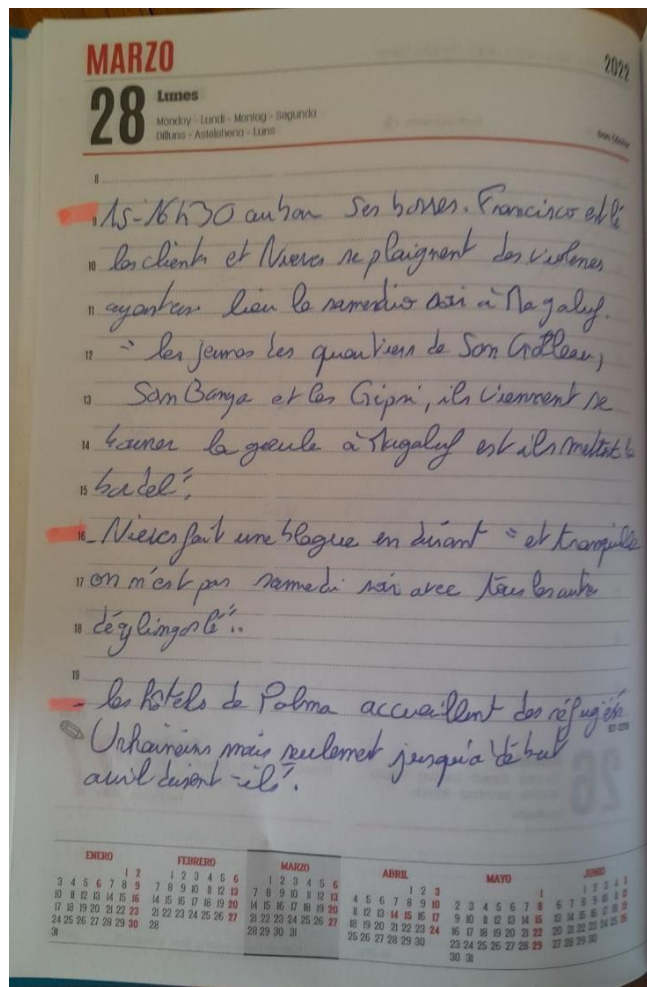 MARZO
2022
28
Lunes
Monday - Lundi - Montag - Segunda
Dilluns - Astelehena - Luns
8
9 15-16h30 au bar Ses bosses. Francisco et
10 les clients et Nieves se plaignent des violences
11 ayant lieu le samedi soir à Magaluf.
12 " les jeunes des quartiers de Son Gotleau,
13 Son Banya et les Gipsi, ils viennent se
14 la gueule à Magaluf est ils mettent le
15 bordel".
16 - Nieves fait une blague en disant " et tranquille
17 on n'est pas samedi soir avec tous les autres
18 déglingos là"..
19
- les hôtels de Palma accueillent des réfugiés
Ukrainiens mais seulement jusqu'à début
avril disent-ils".
ENERO
1 2
3 4 5 6 7 8 9
10 11 12 13 14 15 16
17 18 19 20 21 22 23
24 25 26 27 28 29 30
31
FEBRERO
1 2 3 4 5 6
7 8 9 10 11 12 13
14 15 16 17 18 19 20
21 22 23 24 25 26 27
28
MARZO
1 2 3 4 5 6
7 8 9 10 11 12 13
14 15 16 17 18 19 20
21 22 23 24 25 26 27
28 29 30 31
ABRIL
1 2 3
4 5 6 7 8 9 10
11 12 13 14 15 16 17
18 19 20 21 22 23 24
25 26 27 28 29 30
MAYO
1
2 3 4 5 6 7 8
9 10 11 12 13 14 15
16 17 18 19 20 21 22
23 24 25 26 27 28 29
30 31
JUNIO
1 2 3 4 5
6 7 8 9 10 11 12
13 14 15 16 17 18 19
20 21 22 23 24 25 26
27 28 29 30